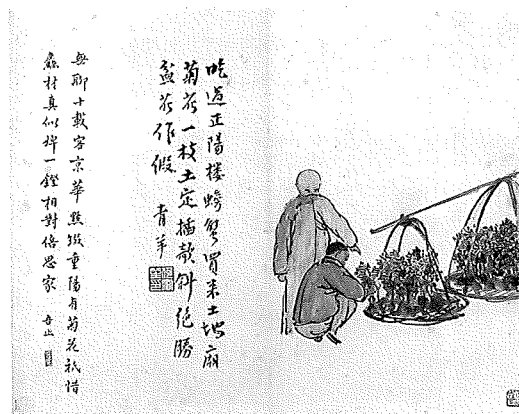 吃過正陽樓螃蟹買來土地廟
菊花一枝土定插欹斜絕勝
盆花作假 青羊
無聊十載客京華點綴重陽有菊花祇惜
材真似一鐙相對倍思家